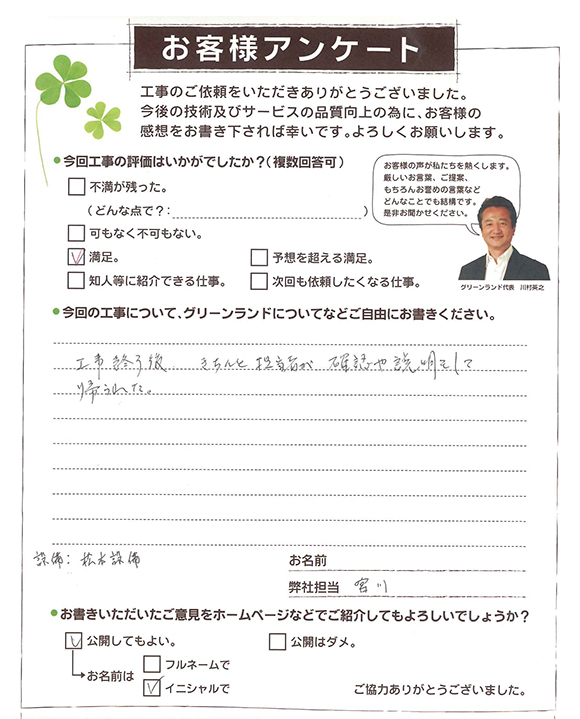 お客様アンケート
工事のご依頼をいただきありがとうございました。
今後の技術及びサービスの品質向上の為に、お客様の
感想をお書き下されば幸いです。よろしくお願いします。
●今回工事の評価はいかがでしたか?(複数回答可)
不満が残った。
(どんな点で?: )
可もなく不可もない。
満足。
予想を超える満足。
知人等に紹介できる仕事。
次回も依頼したくなる仕事。
お客様の声が私たちを熱くします。
厳しいお言葉、ご提案、
もちろんお誉めの言葉など
どんなことでも結構です。
是非お聞かせください。
グリーンランド代表 川村英之
●今回の工事について、グリーンランドについてなどご自由にお書きください。
工事終了後 きちんと担当者が確認や説明をして
帰られた。
設備:松本設備
お名前
弊社担当 宮川
●お書きいただいたご意見をホームページなどでご紹介してもよろしいでしょうか?
公開してもよい。
公開はダメ。
お名前は
フルネームで
イニシャルで
ご協力ありがとうございました。